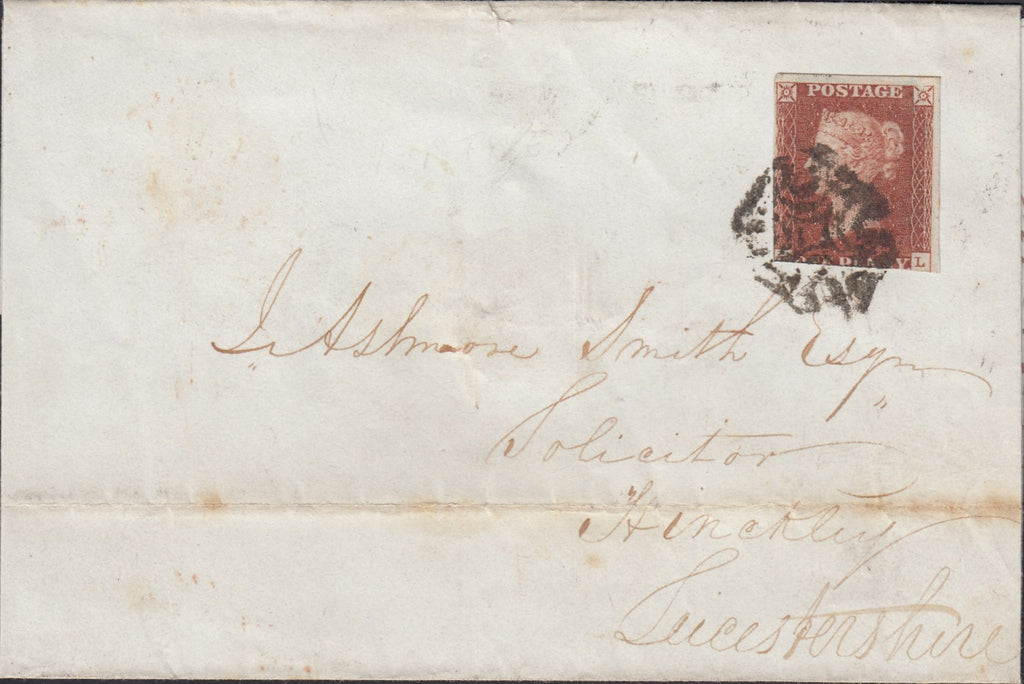 POSTAGE
L
J. Ashmore Smith Esqr
Solicitor
Hinckley
Leicestershire